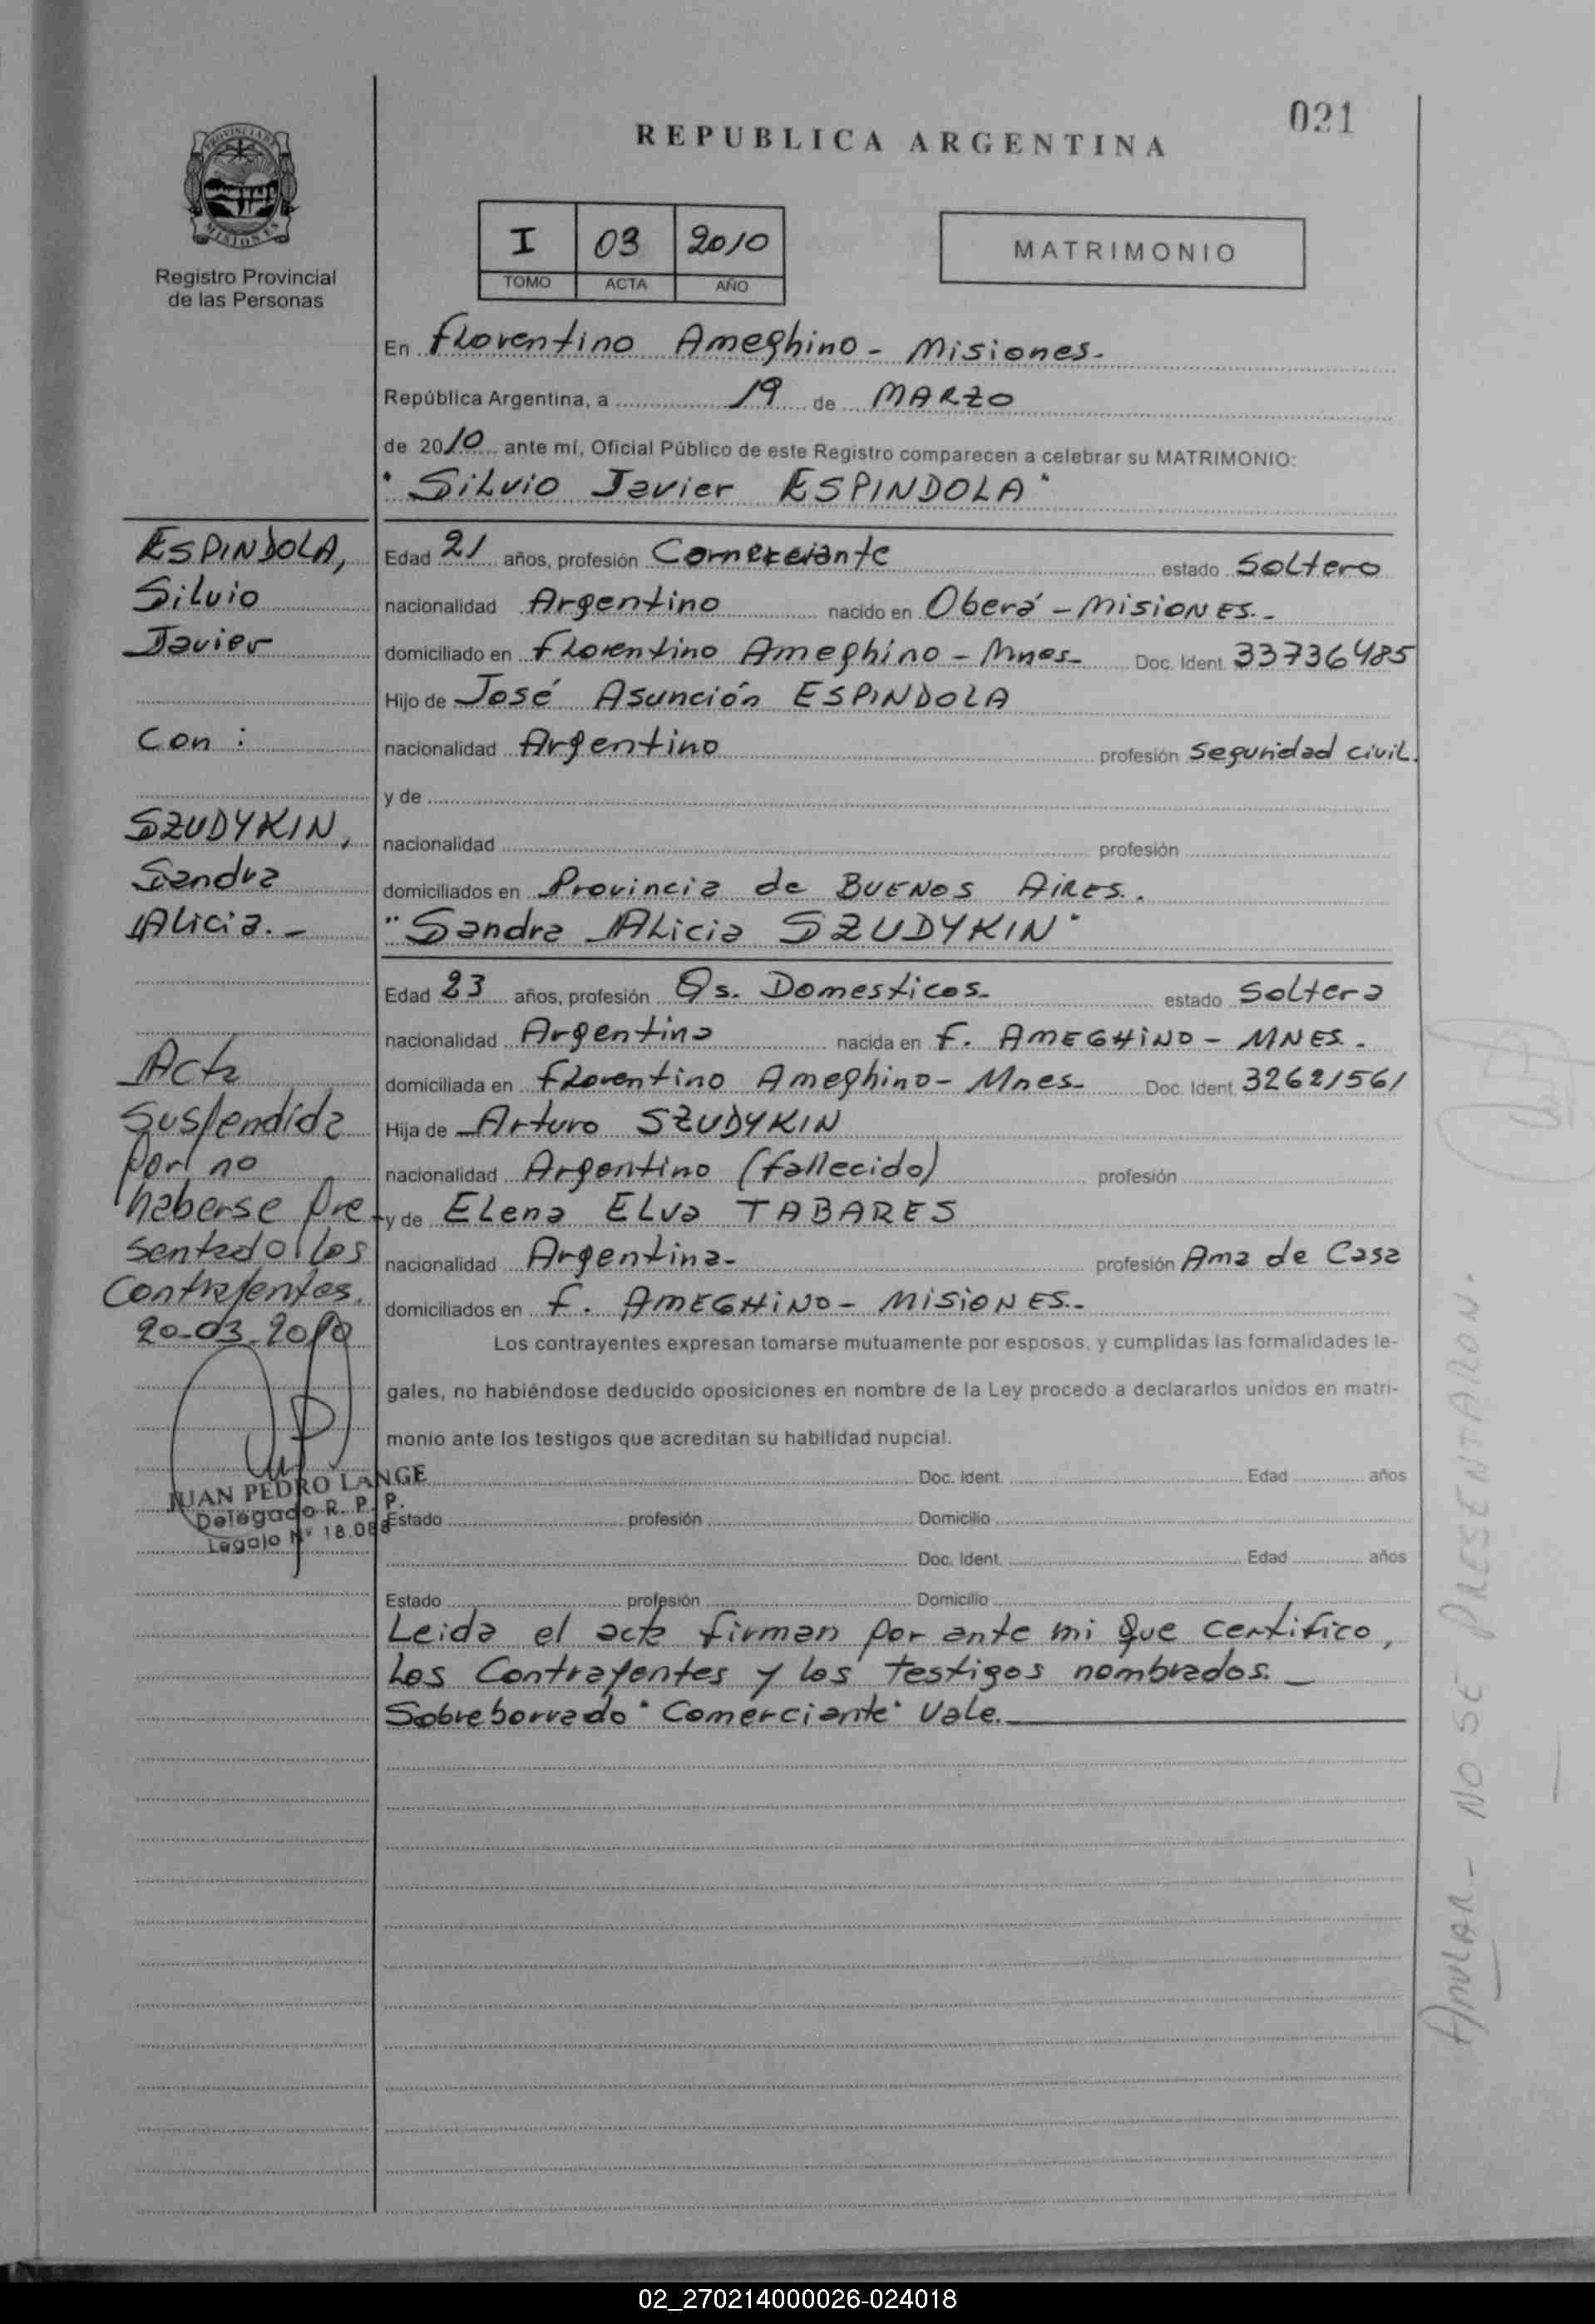 021
REPUBLICA ARGENTINA
PROVINCIA DE
MISIONES
Registro Provincial
de las Personas
I 03 2010
TOMO ACTA AÑO
MATRIMONIO
En Florentino Ameghino - Misiones.
República Argentina, a 19 de MARZO
de 2010 ante mí, Oficial Público de este Registro comparecen a celebrar su MATRIMONIO:
"Silvio Javier ESPINDOLA"
ESPINDOLA,
Silvio
Javier
Con :
SZUDYKIN,
Sandra
Alicia.-
Edad 21 años, profesión Comerciante estado Soltero
nacionalidad Argentino nacido en Oberá - MISIONES.-
domiciliado en Florentino Ameghino - Mnes- Doc. Ident. 33736485
Hijo de José Asunción ESPINDOLA
nacionalidad Argentino profesión Seguridad civil.
y de
nacionalidad profesión
domiciliados en Provincia de BUENOS AIRES.
"Sandra Alicia SZUDYKIN"
Edad 23 años, profesión Qs. Domesticos- estado Soltera
nacionalidad Argentina nacida en F. AMEGHINO - MNES.
domiciliada en Florentino Ameghino- Mnes- Doc. Ident. 32621561
Hija de Arturo SZUDYKIN
nacionalidad Argentino (fallecido) profesión
y de Elena ELva TABARES
nacionalidad Argentina- profesión Ama de Casa
domiciliados en F. AMEGHINO - MISIONES-
Acta
Suspendida
por no
haberse pre-
sentado los
Contrayentes.
20-03-2010
JUAN PEDRO LANGE
Delegado R. P. P.
Legajo Nº 18.088
Los contrayentes expresan tomarse mutuamente por esposos, y cumplidas las formalidades le-
gales, no habiéndose deducido oposiciones en nombre de la Ley procedo a declararlos unidos en matri-
monio ante los testigos que acreditan su habilidad nupcial.
Doc. Ident. Edad años
Estado profesión Domicilio
Doc. Ident. Edad años
Estado profesión Domicilio
Leida el acta firman por ante mi que certifico,
los Contrayentes y los testigos nombrados._
Sobreborrado "Comerciante" Vale.
ANULAR - NO SE PRESENTARON.
02_270214000026-024018